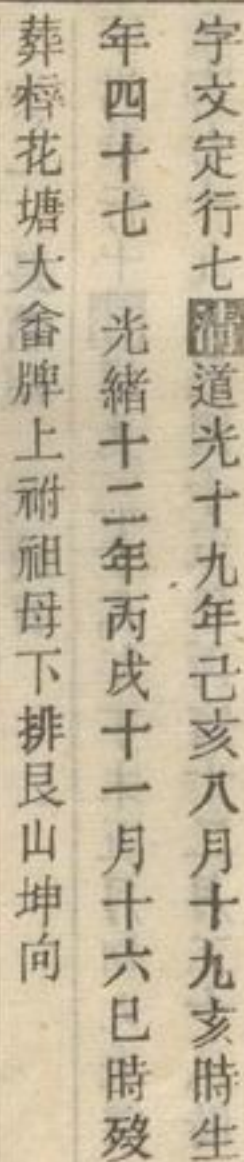 字文定行七清道光十九年己亥八月十九亥時生
年四十七 光緒十二年丙戌十一月十六巳時歿
葬梓花塘大畬牌上祔祖母下排艮山坤向